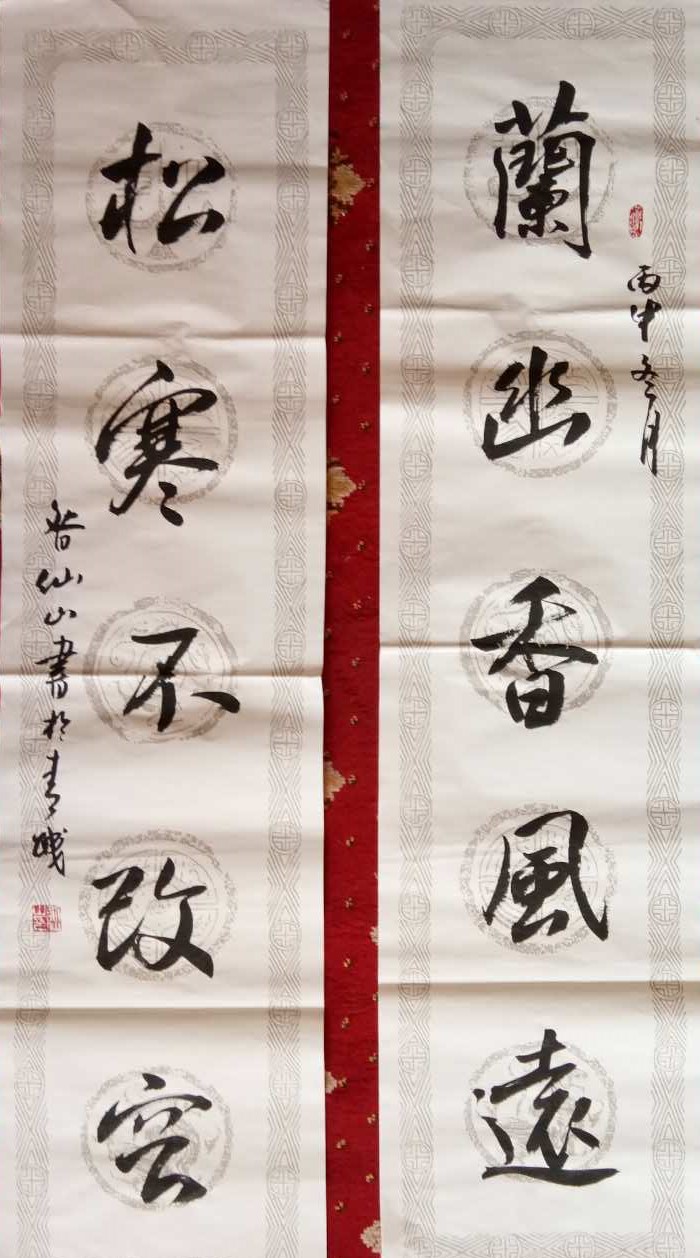 蘭幽香風遠
丙申冬月
松寒不改容
仙山書於青城